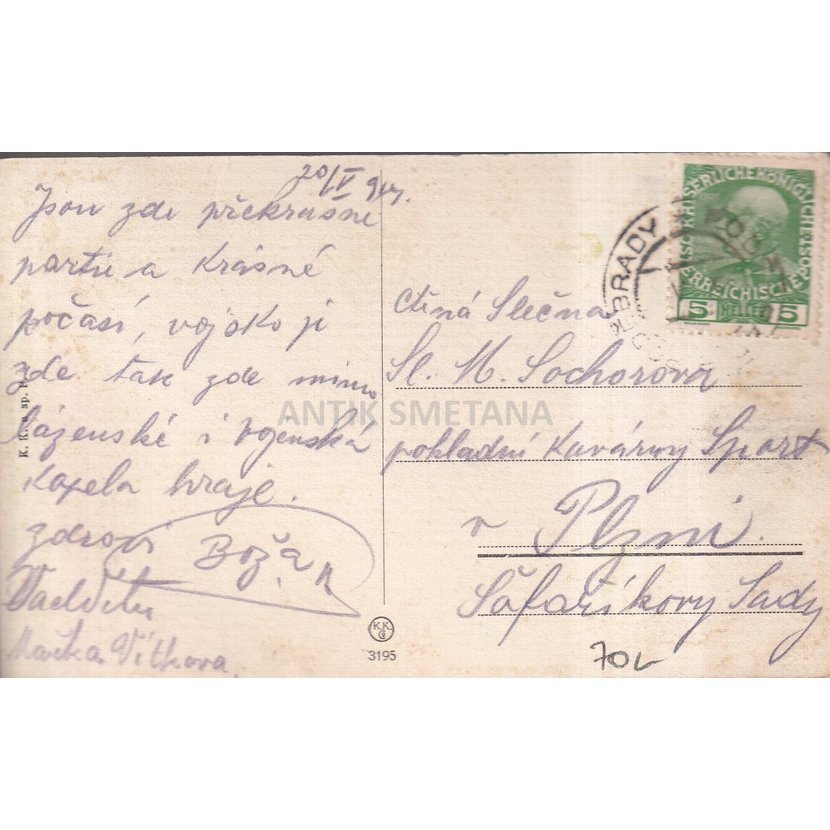 20/V 917.
Jsou zde překrásné
partie a krásné
počasí, vojsko je
zde tak zde mimo
lázenské i vojenská
kapela hraje.
zdraví Boža
Mařka Vítkova
K. K. sp.
ctěná Slečna
Sl. M. Sochorova
pokladní Kavárny Sport
v Plzni.
Šafaříkovy Sady
70,-
K.K.
3195
BRADY
KAISERLICHE KÖNIGLICHE
ÖSTERREICHISCHE POST
5 HELLER 5
ANTIK SMETANA